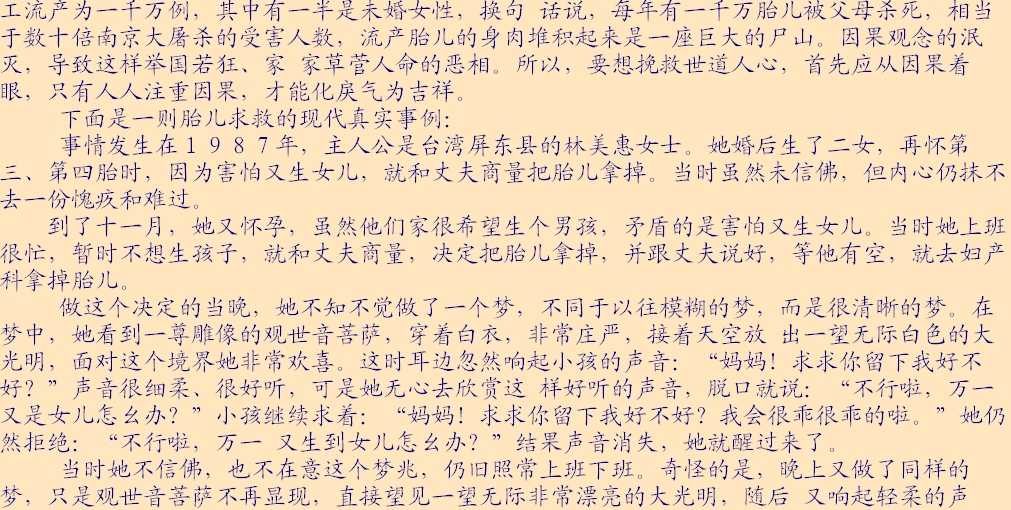 工流产为一千万例，其中有一半是未婚女性，换句 话说，每年有一千万胎儿被父母杀死，相当
于数十倍南京大屠杀的受害人数，流产胎儿的身肉堆积起来是一座巨大的尸山。因果观念的泯
灭，导致这样举国若狂、家 家草菅人命的恶相。所以，要想挽救世道人心，首先应从因果着
眼，只有人人注重因果，才能化戾气为吉祥。
下面是一则胎儿求救的现代真实事例：
事情发生在１９８７年，主人公是台湾屏东县的林美惠女士。她婚后生了二女，再怀第
三、第四胎时，因为害怕又生女儿，就和丈夫商量把胎儿拿掉。当时虽然未信佛，但内心仍抹不
去一份愧疚和难过。
到了十一月，她又怀孕，虽然他们家很希望生个男孩，矛盾的是害怕又生女儿。当时她上班
很忙，暂时不想生孩子，就和丈夫商量，决定把胎儿拿掉，并跟丈夫说好，等他有空，就去妇产
科拿掉胎儿。
做这个决定的当晚，她不知不觉做了一个梦，不同于以往模糊的梦，而是很清晰的梦。在
梦中，她看到一尊雕像的观世音菩萨，穿着白衣，非常庄严，接着天空放 出一望无际白色的大
光明，面对这个境界她非常欢喜。这时耳边忽然响起小孩的声音：“妈妈！求求你留下我好不
好？”声音很细柔、很好听，可是她无心去欣赏这 样好听的声音，脱口就说：“不行啦，万一
又是女儿怎幺办？”小孩继续求着：“妈妈！求求你留下我好不好？我会很乖很乖的啦。”她仍
然拒绝：“不行啦，万一 又生到女儿怎幺办？”结果声音消失，她就醒过来了。
当时她不信佛，也不在意这个梦兆，仍旧照常上班下班。奇怪的是，晚上又做了同样的
梦，只是观世音菩萨不再显现，直接望见一望无际非常漂亮的大光明，随后 又响起轻柔的声